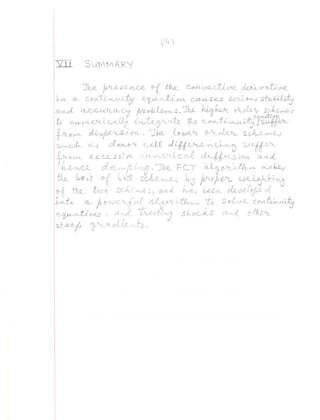 (14)
VII SUMMARY
The presence of the convective derivative
in a continuity equation causes serious stability
and accuracy problems. The higher order schemes
to numerically integrate the continuity equation suffer
from dispersion. The lower order schemes
such as donor cell differencing suffer
from excessive numerical diffusion and
hence damping. The FCT algorithm makes
the best of both schemes by proper weighting
of the two schemes, and has been developed
into a powerful algorithm to solve continuity
equations, and treating shocks and other
steep gradients.